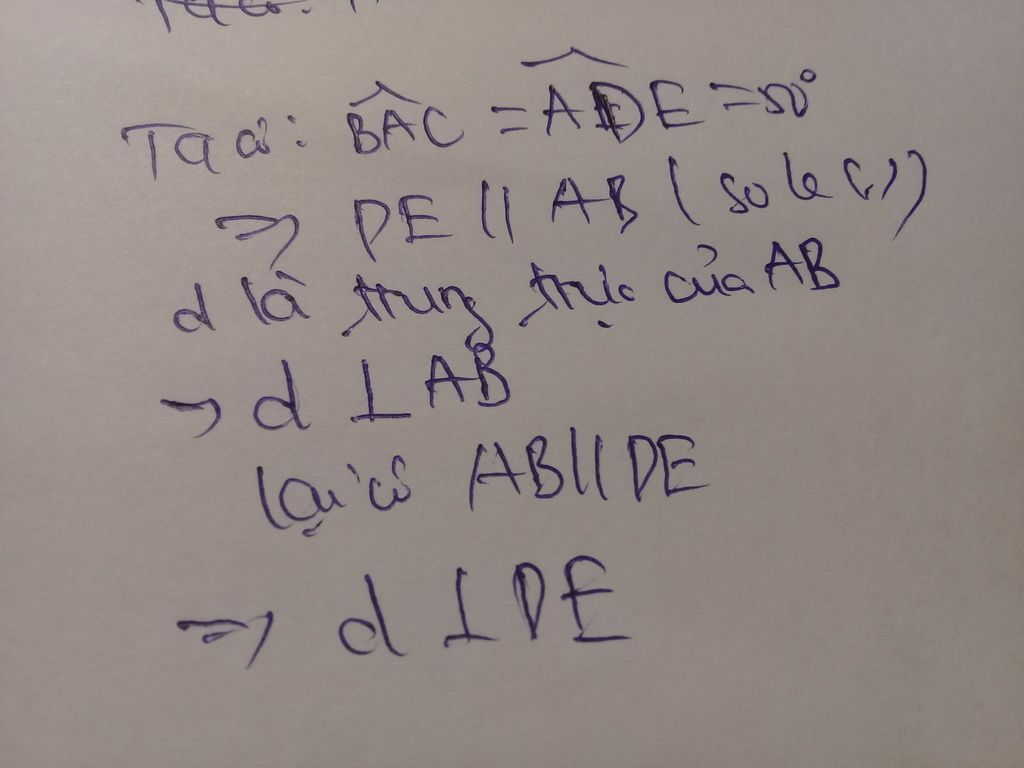 Ta có: BAC = ADE = 50°
=> DE // AB (so le
d là trung trực của AB
→ d ⊥ AB
lại có AB // DE
=> d ⊥ DE